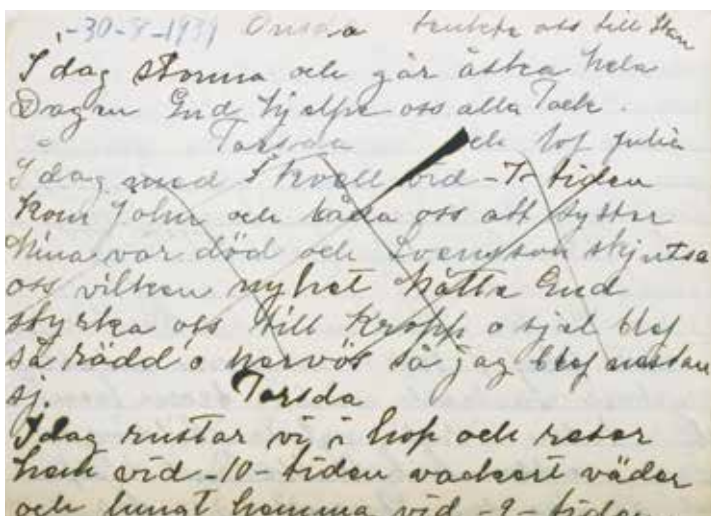 -30-8-1939 Onsda till Stan
I dag storma och går åska hela
Dagen Gud hjelpe oss alla Tack.
Torsda och lof Julia
I dag med I kväll vid -7- tiden
kom John och båda oss att syster
Mina var död och Svensson skjutsa
oss vilken nyhet måtte Gud
styrka oss till Kropp o sjel blef
så rädd o nervös så jag blef nästan
sj. Torsda
I dag rustar vi i hop och reser
hem vid -10- tiden vackert väder
och lungt hemma vid -2- tiden